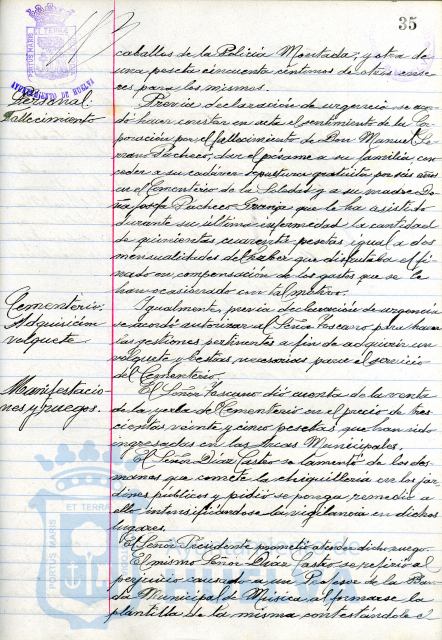 35
PORTUS MARIS ET TERRAE
AYUNTAMIENTO DE HUELVA
caballos de la Policía Montada; y otra de
una peseta cincuenta céntimos de otros ense-
res para los mismos.
Personal.
Fallecimiento
Previa declaración de urgencia se acor-
dó hacer constar en acta el sentimiento de la Cor-
poración por el fallecimiento de Don Manuel Se-
rrano Pacheco, dar el pésame a su familia, con-
ceder a su cadáver sepultura gratuita por seis años
en el Cementerio de la Soledad y a su madre Do-
ña Josefa Pacheco Granja que le ha asistido
durante su última enfermedad la cantidad
de quinientas cuarenta pesetas igual a dos
mensualidades del haber que disfrutaba el fi-
nado en compensación de los gastos que se le
han ocasionado con tal motivo.
Cementerio.
Adquisición
volquete
Igualmente, previa declaración de urgencia
se acordó autorizar al Señor Toscano para hacer
las gestiones pertinentes a fin de adquirir un
volquete y bestias necesarias para el servicio
del Cementerio.
Manifestacio-
nes y ruegos.
El Señor Toscano dió cuenta de la venta
de la yerba del Cementerio en el precio de tres-
cientas veinte y cinco pesetas que han sido
ingresadas en las Arcas Municipales.
El Señor Díaz Castro se lamentó de los des-
manes que comete la chiquillería en los jar-
dines públicos y pidió se ponga remedio a
ello intensificándose la vigilancia en dichos
lugares.
El Señor Presidente prometió atender dicho ruego.
El mismo Señor Díaz Castro se refirió al
perjuicio causado a un Profesor de la Ban-
da Municipal de Música al formarse la
plantilla de la misma contestándole el
PORTUS MARIS ET TERRAE